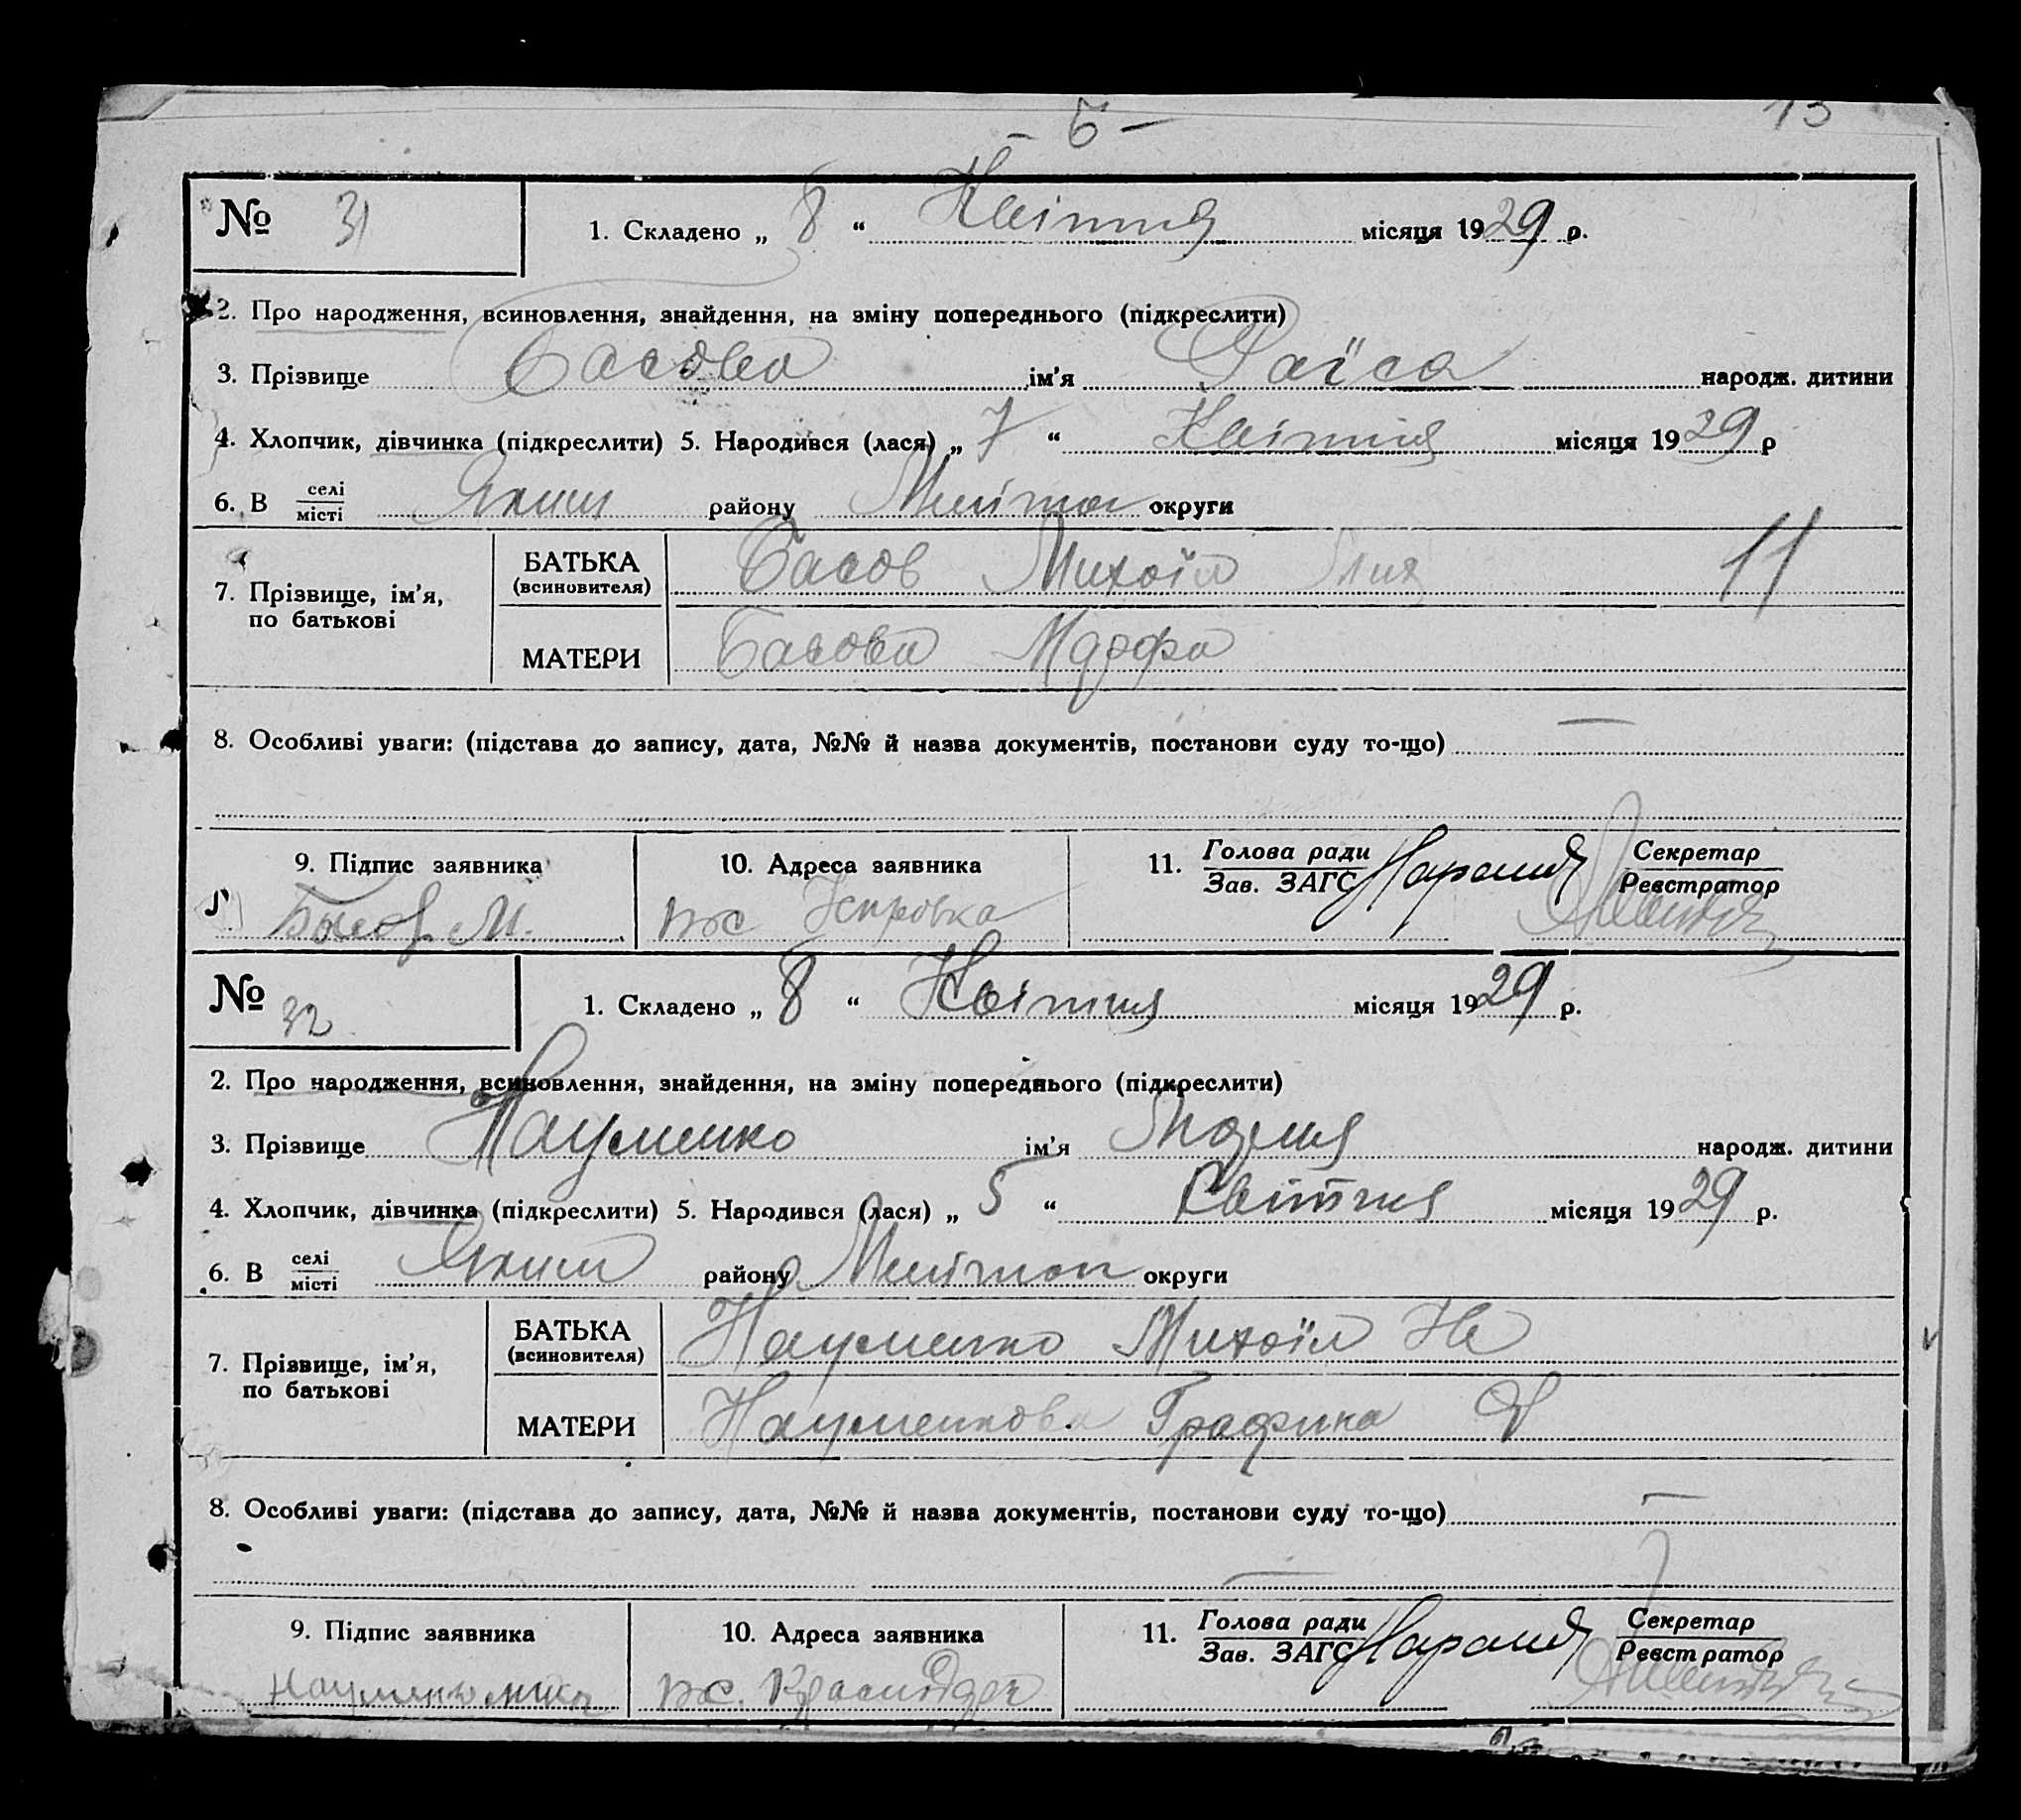 - 5 -
13
№ 31
1. Складено „ 8 “ Квітня місяця 1929 р.
2. Про народження, всиновлення, знайдення, на зміну попереднього (підкреслити)
3. Прізвище Басова ім’я Раїса народж. дитини
4. Хлопчик, дівчинка (підкреслити) 5. Народився (лася) „ 7 “ Квітня місяця 1929 р
6. В селі місті Яким району Меліто округи
7. Прізвище, ім’я, по батькові
БАТЬКА (всиновителя) Басов Михаїл Ілия 11
МАТЕРИ Басова Марфа
8. Особливі уваги: (підстава до запису, дата, №№ й назва документів, постанови суду то-що) —
9. Підпис заявника
10. Адреса заявника
11. Голова ради Зав. ЗАГС
Секретар Реєстратор
Басов М.
№ 32
1. Складено „ 8 “ Квітня місяця 1929 р.
2. Про народження, всиновлення, знайдення, на зміну попереднього (підкреслити)
3. Прізвище Науменко ім’я народж. дитини
4. Хлопчик, дівчинка (підкреслити) 5. Народився (лася) „ 5 “ Квітня місяця 1929 р.
6. В селі місті Яким району Мелітоп округи
7. Прізвище, ім’я, по батькові
БАТЬКА (всиновителя) Науменко Михаїл Ив
МАТЕРИ Науменкова Графина
8. Особливі уваги: (підстава до запису, дата, №№ й назва документів, постанови суду то-що) —
9. Підпис заявника
10. Адреса заявника
11. Голова ради Зав. ЗАГС
Секретар Реєстратор